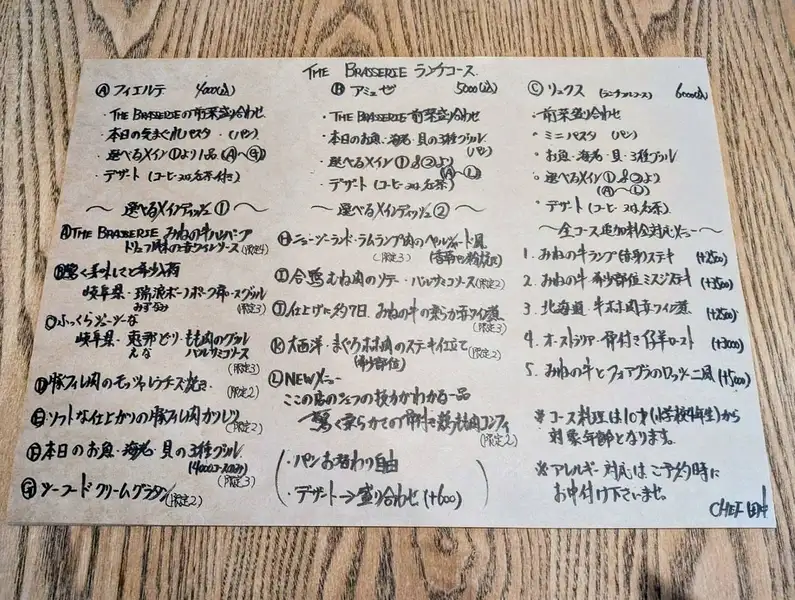 THE BRASSERIE ランチコース
Ⓐ フィエルテ 4000(込)
・THE BRASSERIEの前菜盛り合わせ
・本日の気まぐれパスタ・(パン)
・選べるメイン①より1品(Ⓐ〜Ⓖ)
・デザート(コーヒー又は紅茶付き)
〜 選べるメインディッシュ① 〜
Ⓐ THE BRASSERIE みねの牛ハンバーグ
トリュフ風味の赤ワインソース(限定4)
Ⓑ驚く美味しさと希少入荷
岐阜県・瑞浪ボーノポーク
みずなみ (限定3)
Ⓒふっくらジューシーな
岐阜県・恵那どり・もも肉のグリル
えな バルサミコソース
(限定3)
Ⓓ豚フィレ肉のモッツァレラチーズ焼き (限定2)
Ⓔソフトな仕上がりの豚フィレ肉カツレツ (限定2)
Ⓕ本日のお魚・海老・貝の3種グリル
(4000コースのみ)
(限定3)
Ⓖシーフードクリームグラタン(限定2)
Ⓑ アミュゼ 5000(込)
・THE BRASSERIE 前菜盛り合わせ
・本日のお魚・海老・貝の3種グリル
(パン)
・選べるメイン①&②より
(Ⓐ〜Ⓛ)
・デザート(コーヒー又は紅茶)
〜 選べるメインディッシュ② 〜
Ⓗニュージーランド・ラムランプ肉の
(限定3)
Ⓘ合鴨むね肉のソテー・バルサミコソース(限定2)
Ⓙ仕上げに約7日、みねの牛の柔らか赤ワイン煮
(限定3)
Ⓚ大西洋・まぐろホホ肉のステーキ仕立て(限定2)
(希少部位)
Ⓛ NEWメニュー
ここの店のシェフの技力がわかる一品
驚く柔らかさの骨付き鶏もも肉コンフィ
(限定2)
・パンお替わり自由
・デザート→盛り合わせ(+600)
Ⓒ リュクス (ランチフルコース) 6000(込)
・前菜盛り合わせ
・ミニパスタ (パン)
・お魚・海老・貝・3種グリル
・選べるメイン①&②より
(Ⓐ〜Ⓛ)
・デザート(コーヒー又は紅茶)
〜全コース追加料金対応メニュー〜
1. みねの牛ランプ(赤身)ステーキ (+2500)
2. みねの牛・希少部位ミスジステーキ (+3500)
3. 北海道・牛ホホ肉赤ワイン煮 (+2500)
4. オーストラリア・骨付き仔羊ロースト (+3000)
5. みねの牛とフォアグラのロッシーニ風 (+5000)
※コース料理は10才(小学校4年生)から
対象年齢となります。
※アレルギー対応はご予約時に
お申付け下さいませ。
CHEF 田中